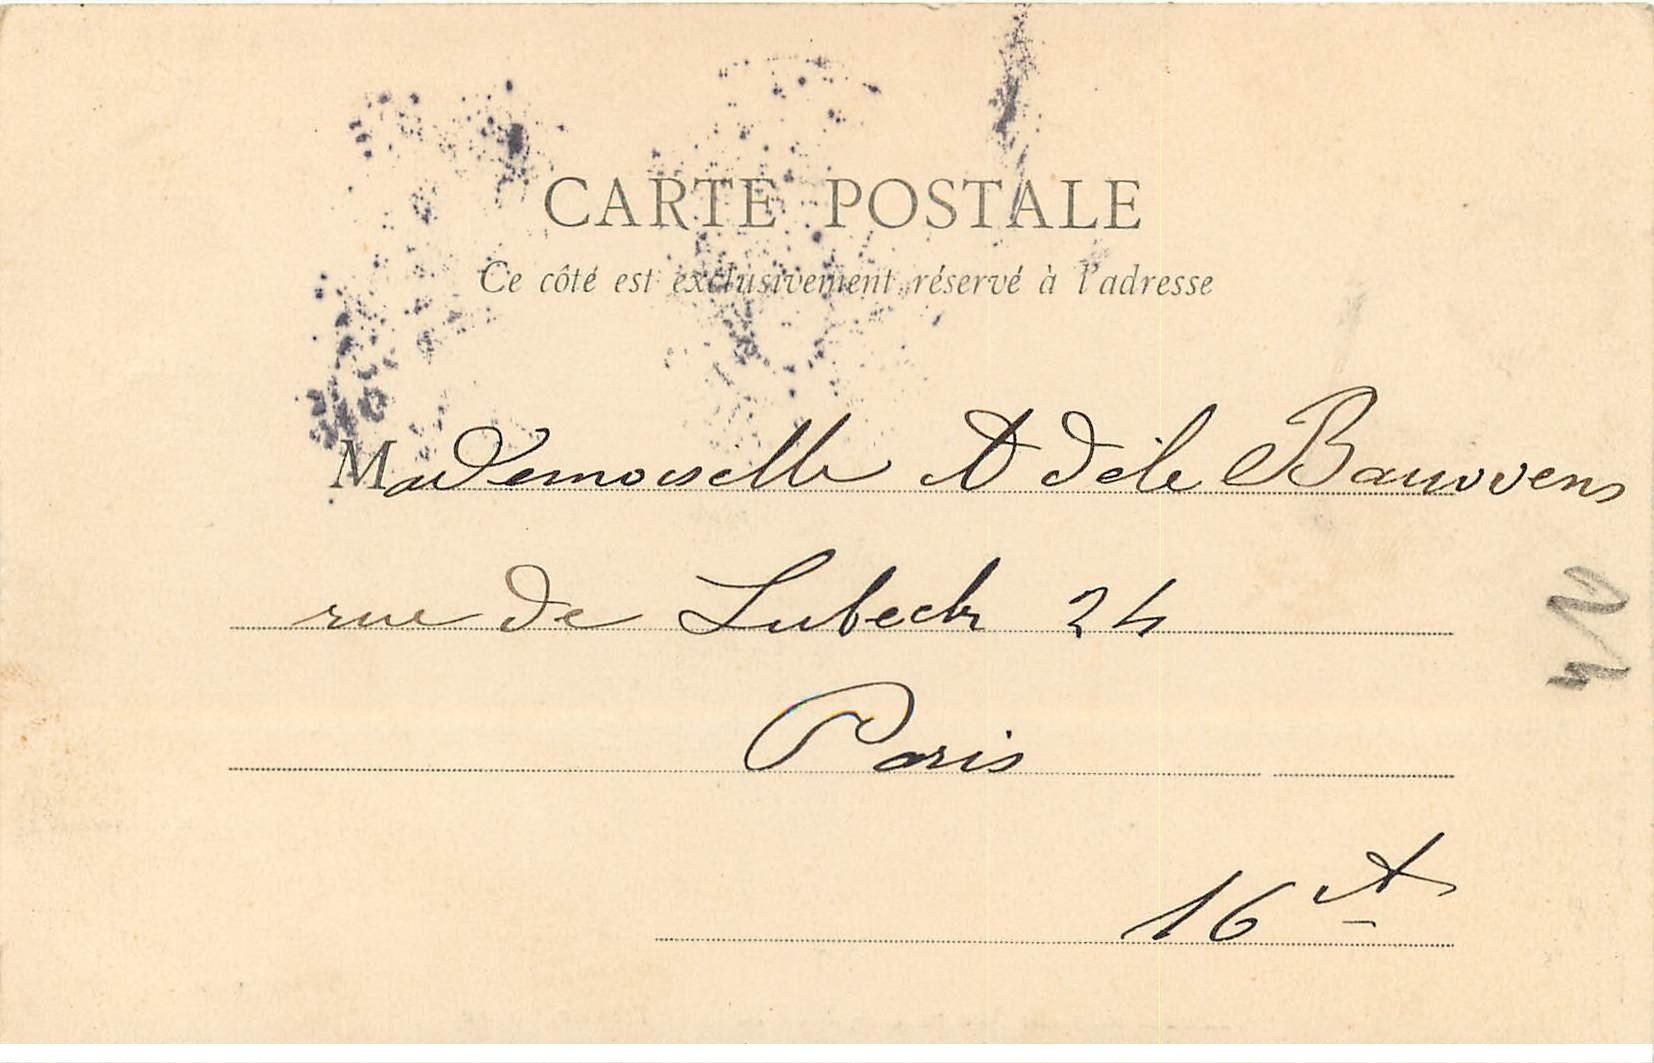 CARTE POSTALE
Ce côté est exclusivement réservé à l'adresse
Mademoiselle Adèle Bauwens
rue de Lubeck 24
Paris
16 A